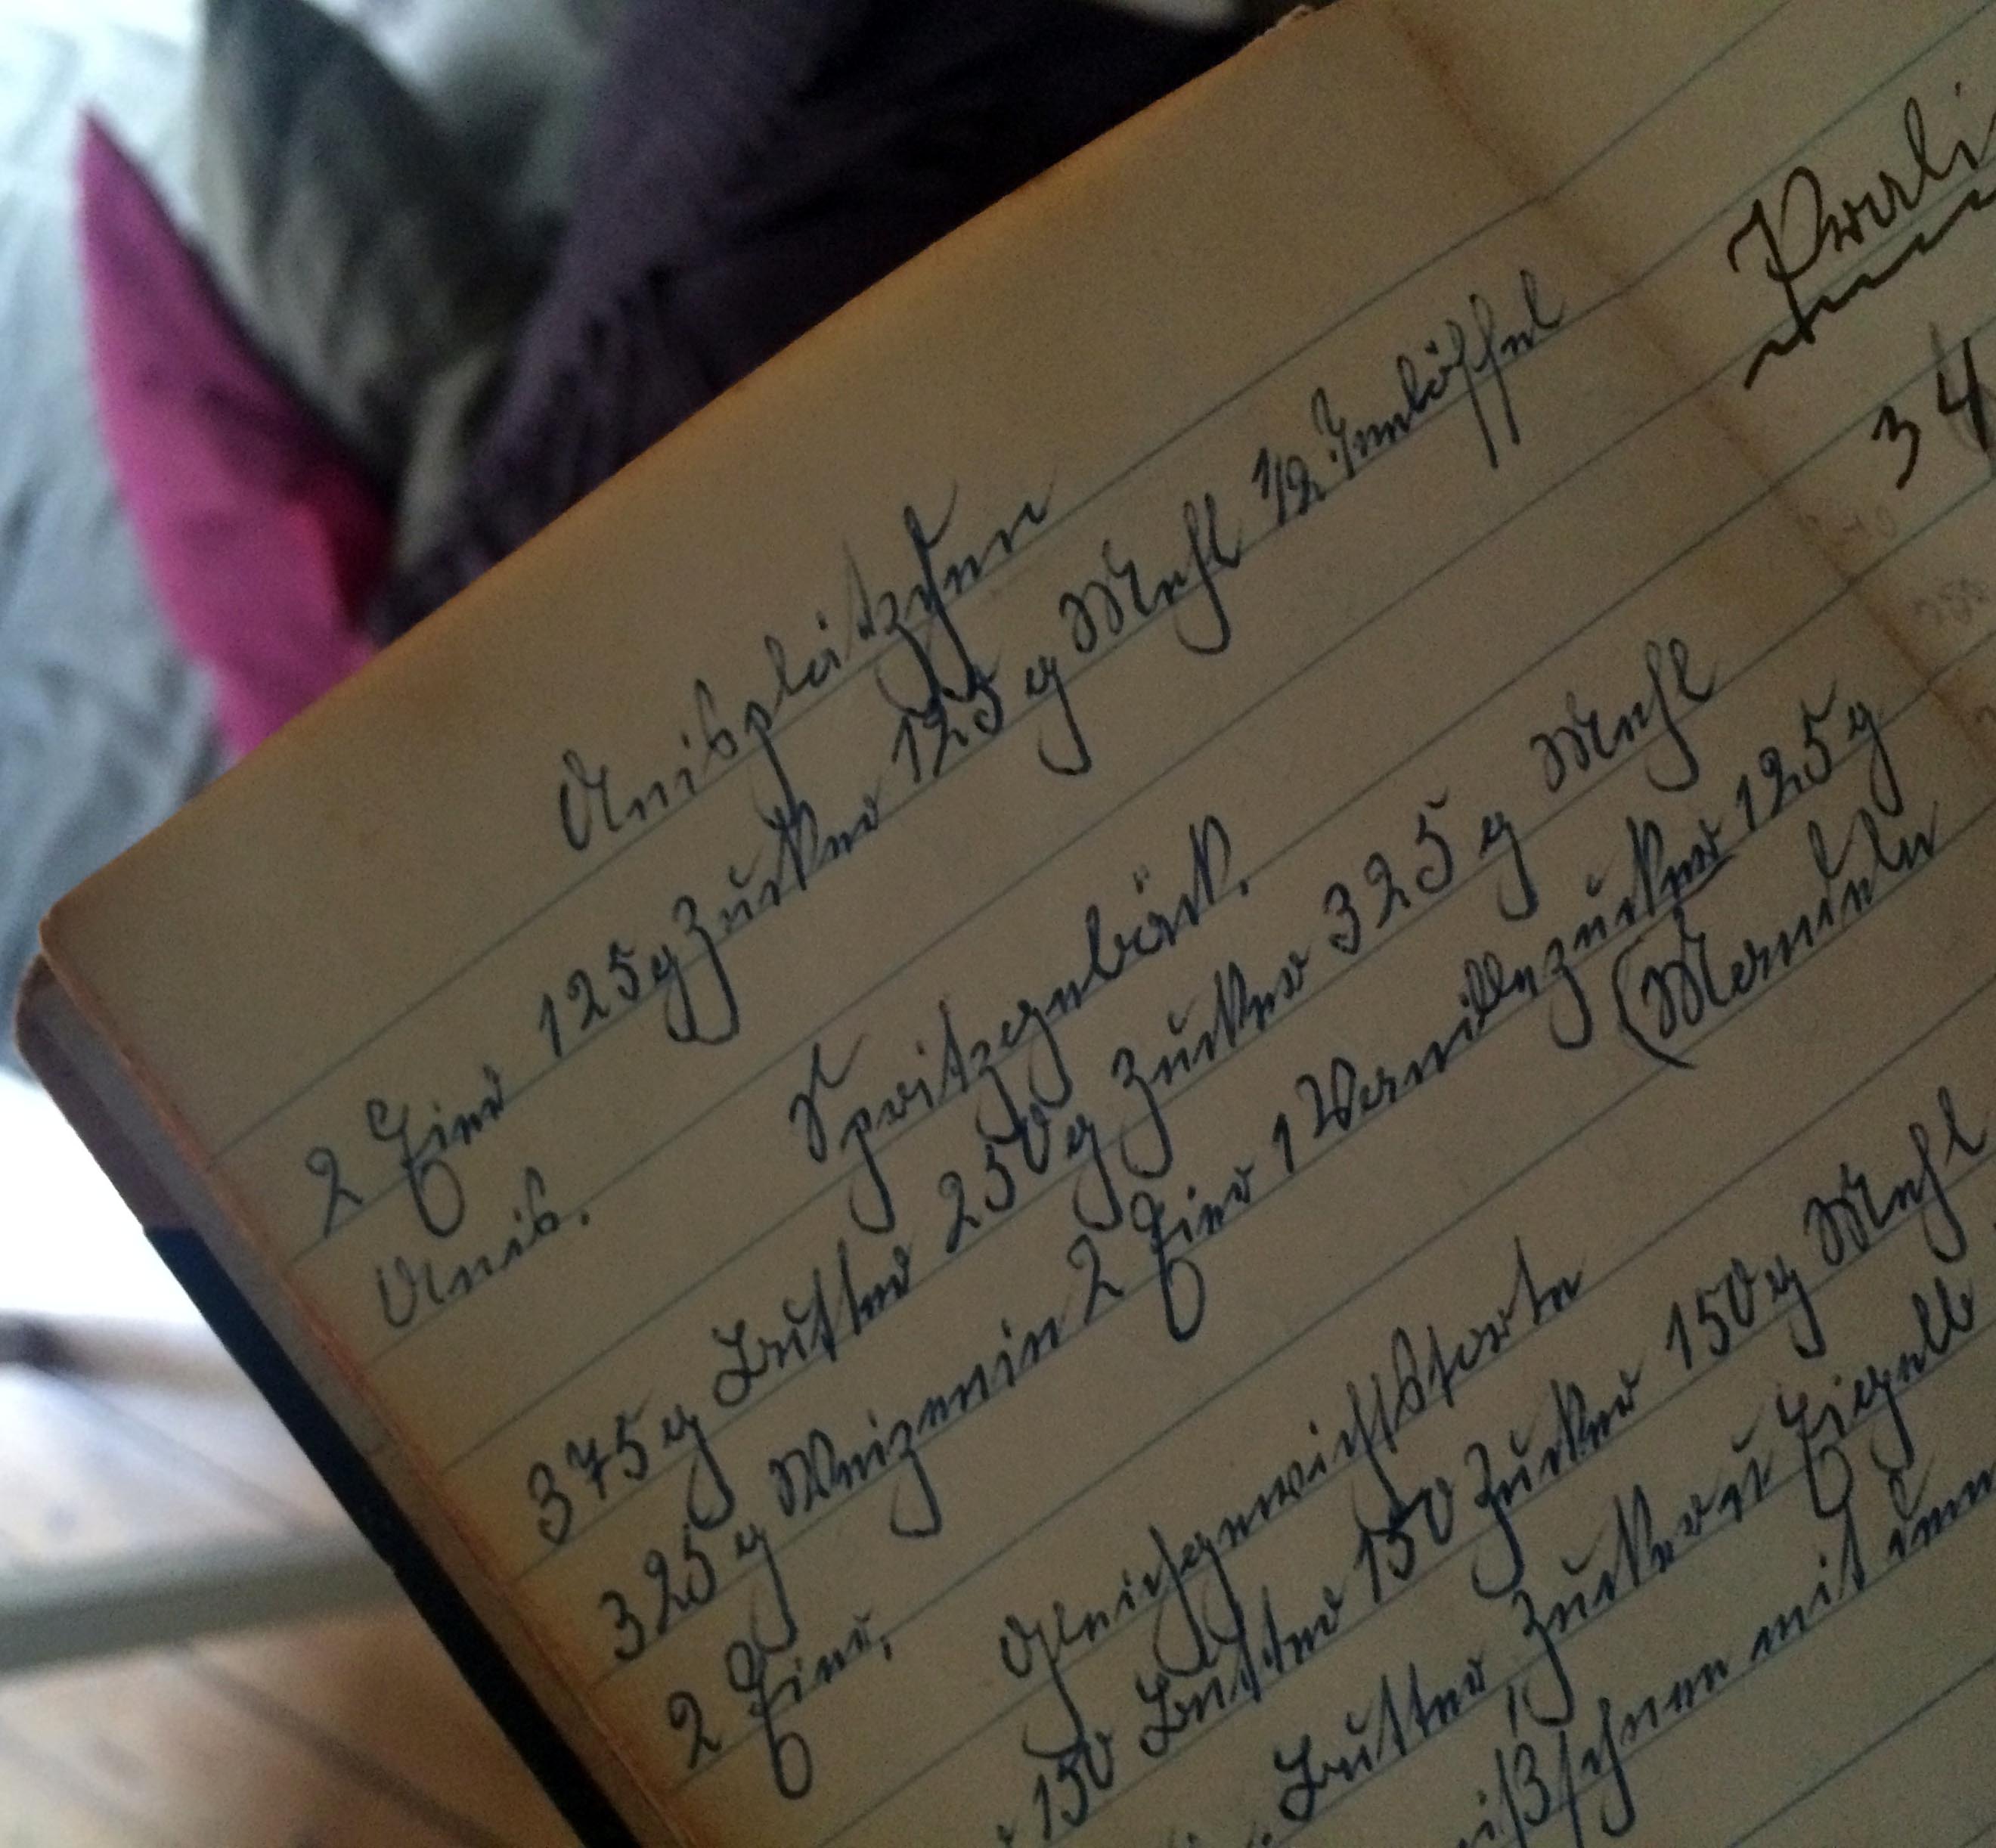 Anisplätzchen
2 Eier 125 g Zucker 125 g Mehl 1/2 Teelöffel
Anis.
Spritzgebäck.
375 g Butter 250 g Zucker 325 g Mehl
325 g Weizenin 2 Eier 1 Vanillezucker 125 g
2 Eier, (Mandeln
Gleichgewichtstorte
150 Butter 150 Zucker 150 g Mehl
Butter Zucker u Eigelb
mit
34